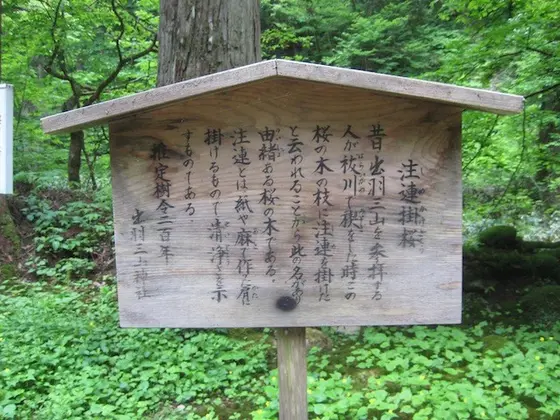 注連掛桜
昔出羽三山を参拝する
人が祓川で禊をした時この
桜の木の枝に注連を掛けた
と云われることから此の名があり
由緒ある桜の木である。
注連とは紙や麻で作った肩に
掛けるもので清浄を示
すものである
推定樹令二百年
出羽三山神社